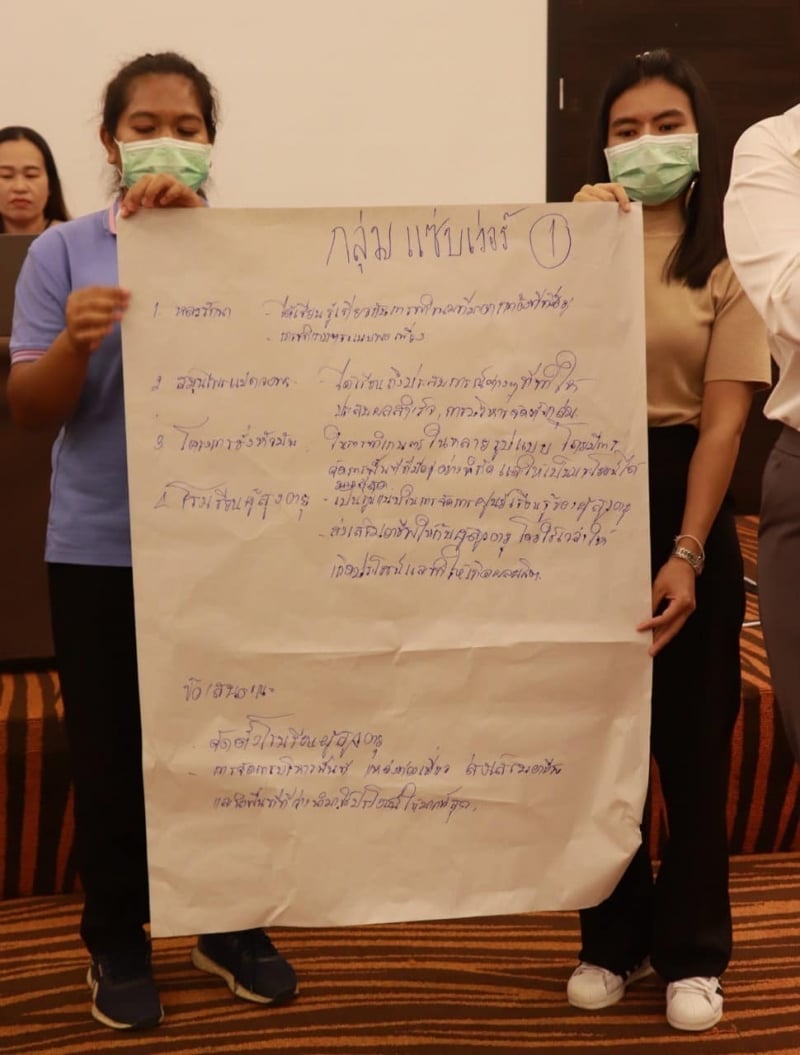 กลุ่ม แซ่บเว่อร์ ①
1. - ได้เรียนรู้เกี่ยวกับการทำ
พอเพียง
2. สมุนไพร - ได้เรียนถึงประสบการณ์ต่างๆที่ทำให้
ประสบผลสำเร็จ, การบริหารจัดการกลุ่ม.
3. โครงการชั่งหัวมัน - ในการทำเกษตร ในหลายรูปแบบ โดยมีการ
จัดการพื้นที่ที่มีอยู่อย่างจำกัด และให้เป็นประโยชน์ได้
มากที่สุด
4. โรงเรียนผู้สูงอายุ - เป็นรูปแบบในการจัดการศูนย์เรียนรู้ของผู้สูงอายุ
- ส่งเสริมอาชีพให้กับผู้สูงอายุ โดยใช้เวลาให้
เกิดประโยชน์และทำให้เกิดผลผลิต.
ข้อเสนอแนะ
- จัดตั้งโรงเรียนผู้สูงอายุ
- การจัดการบริหารพื้นที่ แหล่งท่องเที่ยว ส่งเสริมอาชีพ
และใช้พื้นที่ที่ว่างนำมาใช้ประโยชน์ให้มากที่สุด.